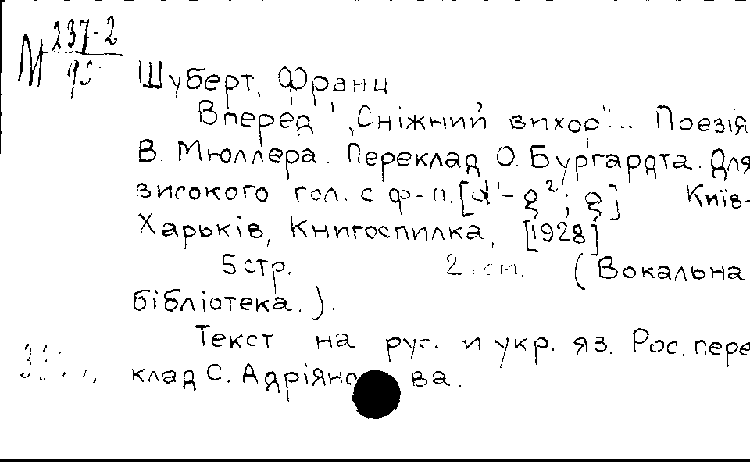 М 237-2
Шуберт, Франц
Вперед! „Сніжний вихор"... Поезія
В. Мюллера. Переклад О. Бургардта. Для
високого гол. с ф-п. [d¹-g²; g] Київ-
Харьків, Книгоспилка, [1928]
5 стр. (Вокальна
бібліотека.).
Текст на рус. и укр. яз. Рос. пере
клад С. Адріянова.